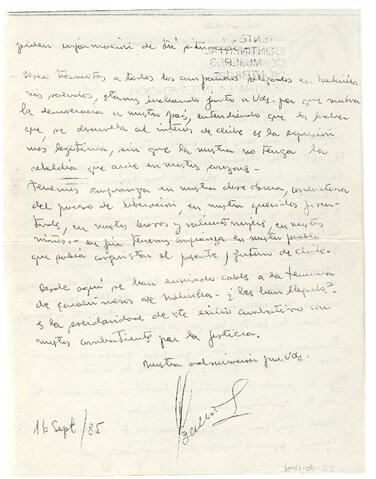 piden información de
- Deseo trasmitas a todos los compañeros relegados en Melinka
mis saludos, estamos luchando junto a Vds. por que vuelva
la democracia a nuestro país, entendiendo que la labor
que se desarrolla al interior de Chile es la expresión
mas legítima, sin que la nuestra no tenga la
rebeldía que arde en nuestros corazones.-
Tenemos confianza en nuestra clase obrera, conductora
del proceso de liberación, en nuestra querida juven-
tud, en nuestras bravas y valientes mujeres, en nuestros
niños.- en fin tenemos confianza en nuestro pueblo
que sabrá conquistar el presente y futuro de Chile.
Desde aquí se han enviado cables a la tenencia
de carabineros de Melinka - ¿les han llegado?
es la solidaridad de este exilio combativo con
nuestros combatientes por la justicia.
Nuestra admiración por Vds.
16 Sept/85